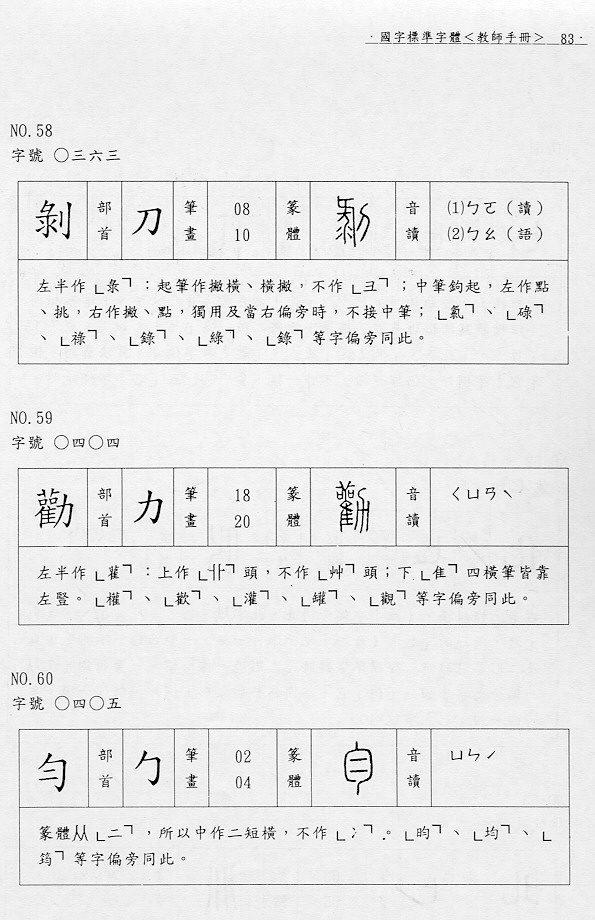 ·國字標準字體<教師手冊> 83·
NO.58
字號 ○三六三
剝 部首 刀 筆畫 08 10 篆體 音讀 ⑴ㄅㄛ(讀) ⑵ㄅㄠ(語)
左半作「彔」:起筆作撇橫、橫撇,不作「彐」;中筆鉤起,左作點
、挑,右作撇、點,獨用及當右偏旁時,不接中筆;「氣」、「碌」
、「祿」、「錄」、「綠」、「錄」等字偏旁同此。
NO.59
字號 ○四○四
勸 部首 力 筆畫 18 20 篆體 音讀 ㄑㄩㄢˋ
左半作「雚」:上作「卝」頭,不作「艸」頭;下「隹」四橫筆皆靠
左豎。「權」、「歡」、「灌」、「罐」、「觀」等字偏旁同此。
NO.60
字號 ○四○五
勻 部首 勹 筆畫 02 04 篆體 音讀 ㄩㄣˊ
篆體从「二」,所以中作二短橫,不作「冫」。「昀」、「均」、「
筠」等字偏旁同此。